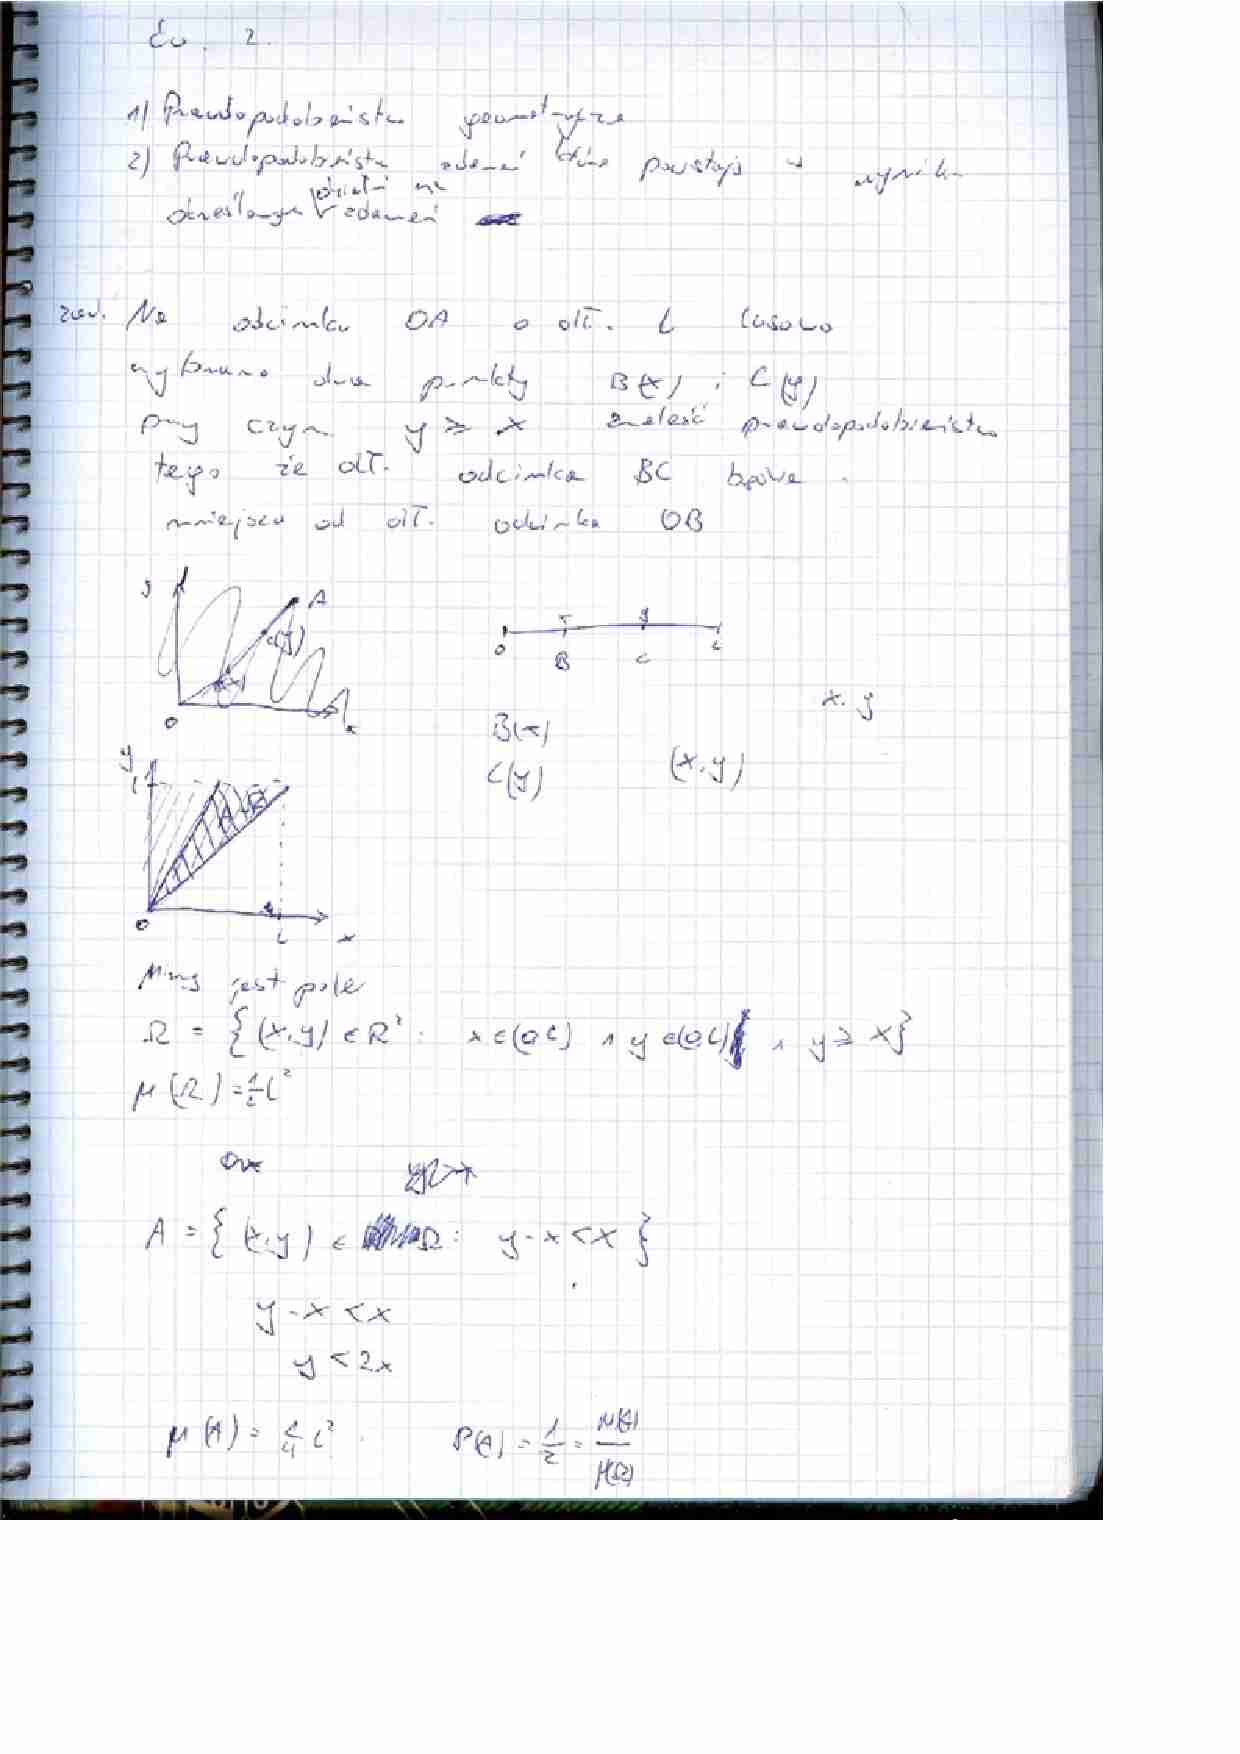 Ćw. 2.
1) Prawdopodobieństwo geometryczne
2) Prawdopodobieństwo zdarzeń które powstają w wyniku
działań na
określonych zdarzeń
zad. Na odcinku OA o dł. L losowo
wybrano dwa punkty B(x) i C(y)
przy czym y ≥ x znaleść prawdopodobieństwo
tego że dł. odcinka BC będzie
mniejsza od dł. odcinka OB
y A C(y) B(x) 0 x
0 x B y C L
x, y
B(x)
C(y) (x,y)
y L A Ω
0 L x
Miarą jest pole
Ω = {(x,y) ∈ R² : x ∈ (0,L) ∧ y ∈ (0,L) ∧ y ≥ x}
μ(Ω) = 1/2 L²
A = {(x,y) ∈ Ω : y - x < x }
y - x < x
y < 2x
μ(A) = 1/4 L² P(A) = 1/2 = μ(A)/μ(Ω)